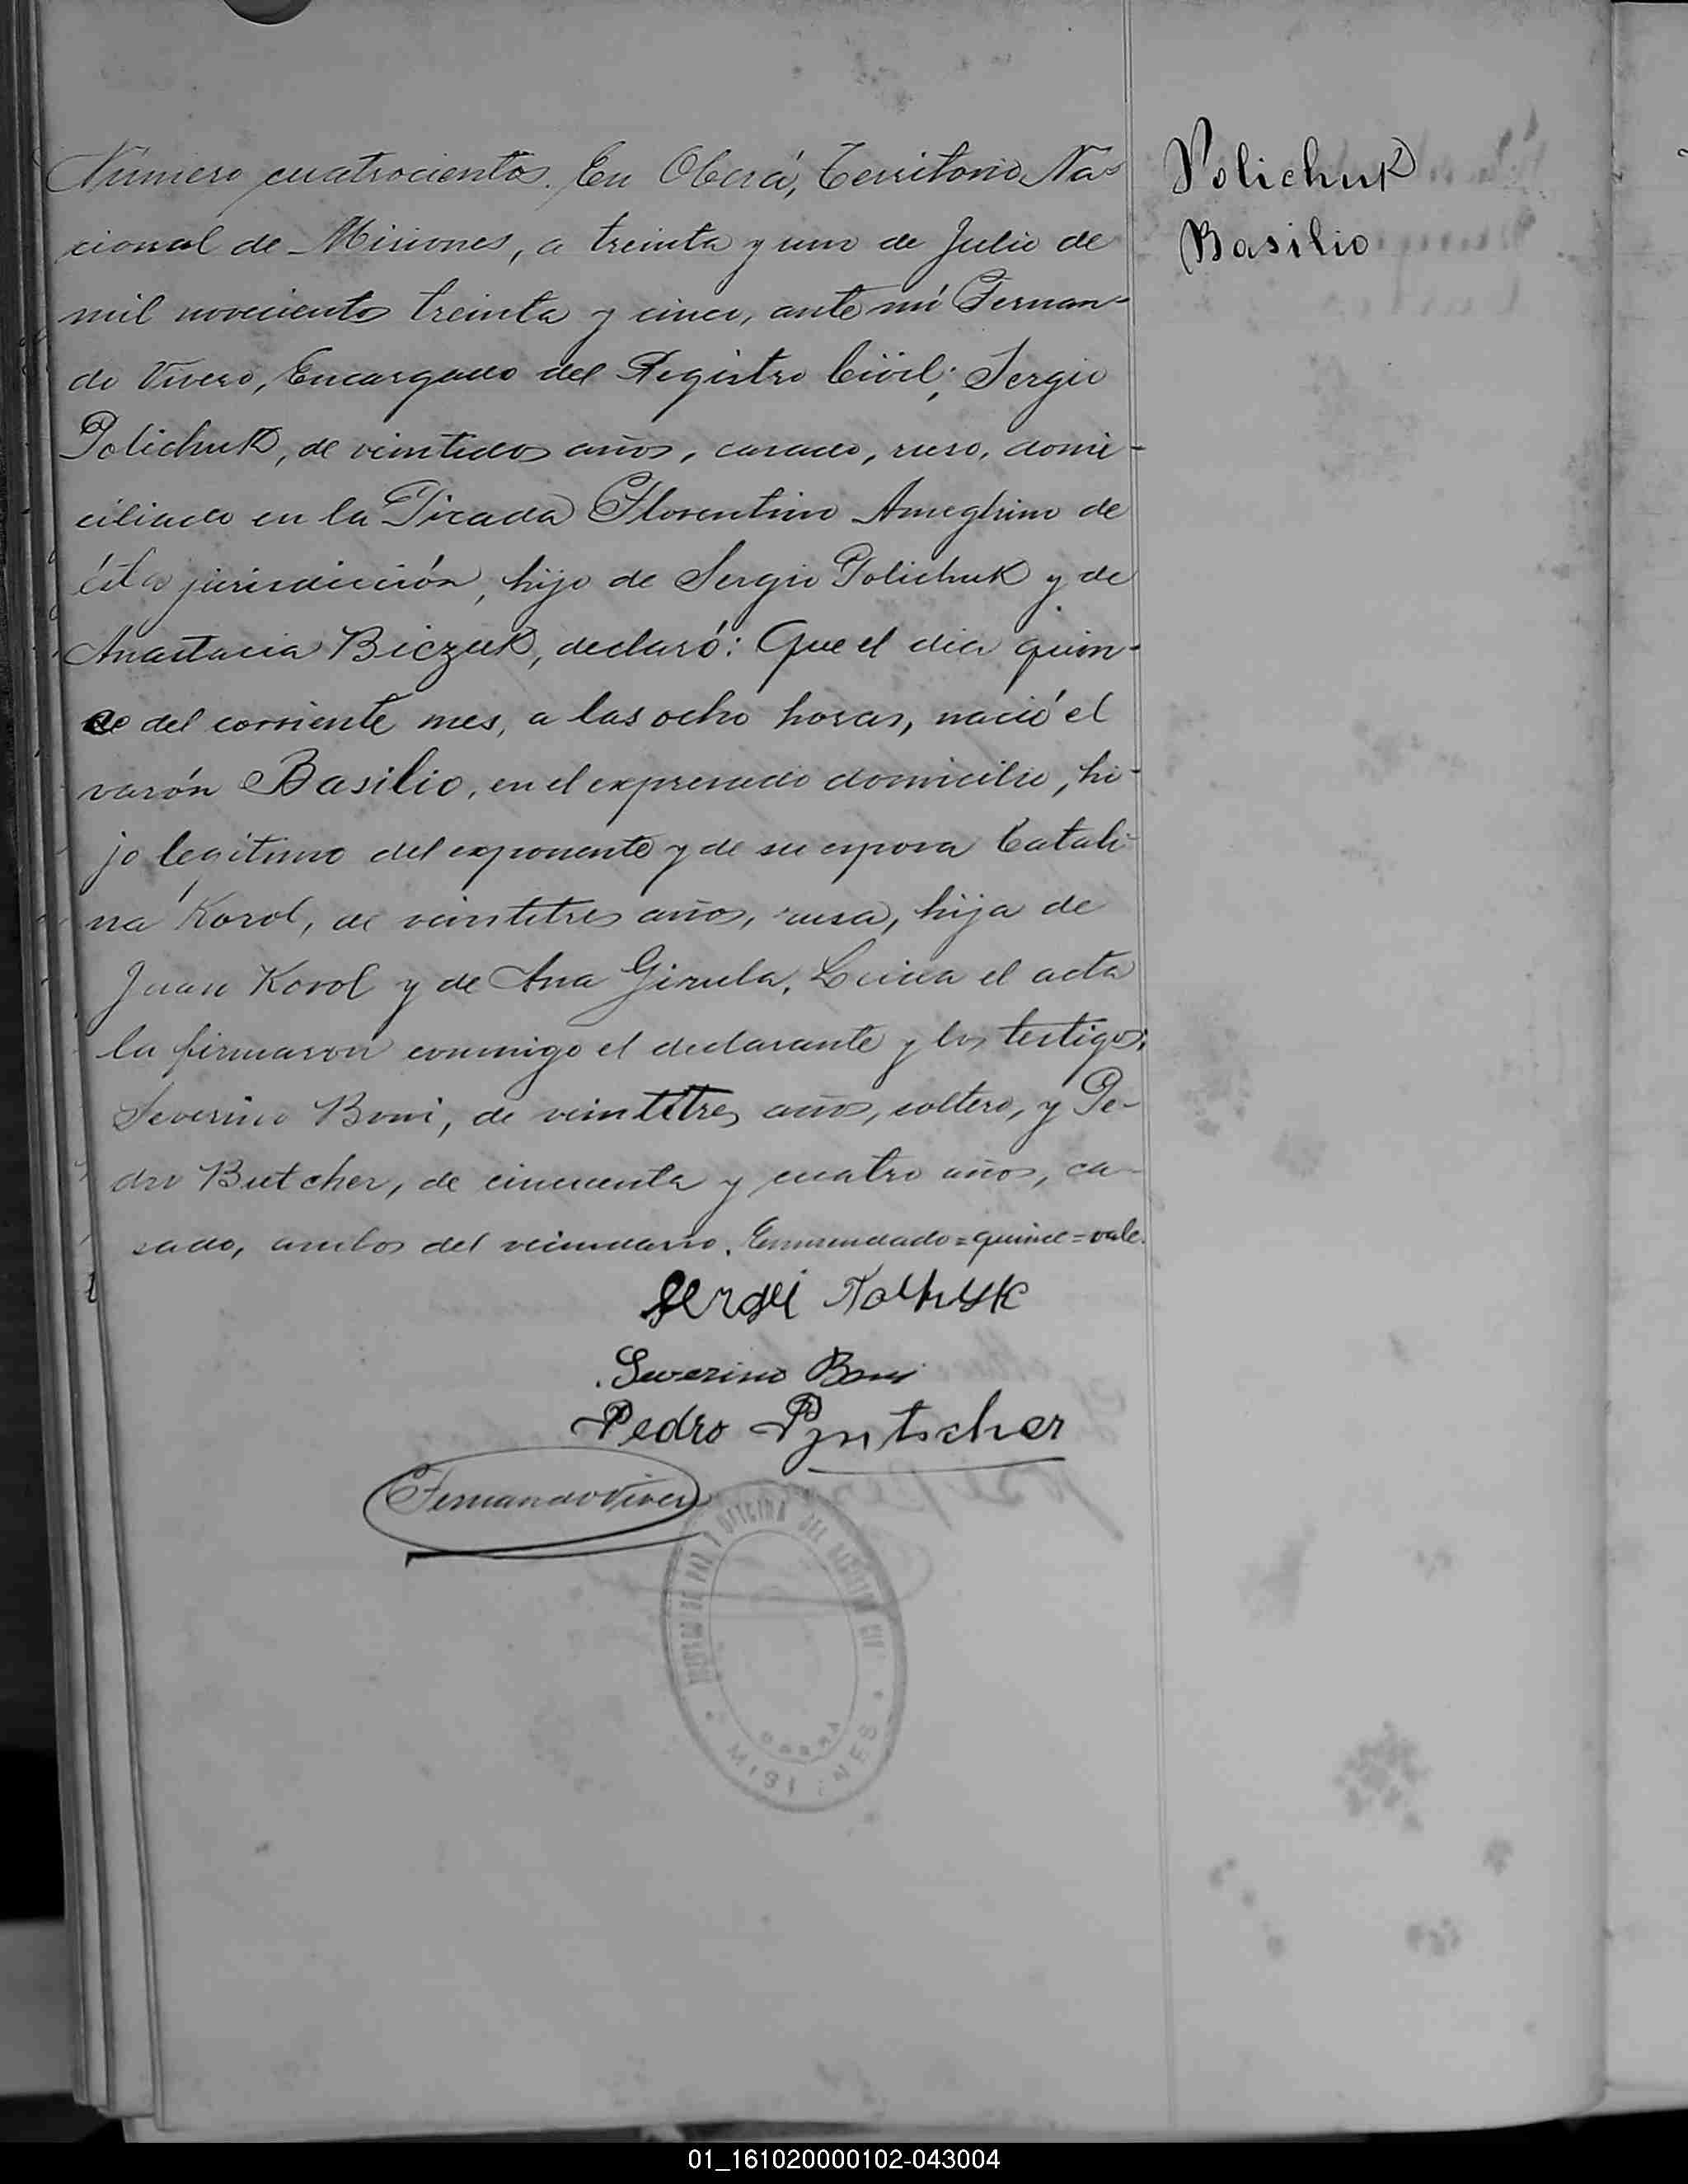 Número cuatrocientos. En Oberá, Territorio Na-
cional de Misiones, a treinta y uno de Julio de
mil novecientos treinta y cinco, ante mí Fernan-
do Vivero, Encargado del Registro Civil; Sergio
Polichuk, de veintidos años, casado, ruso, domi-
ciliado en la Picada Florentino Ameghino de
ésta jurisdicción, hijo de Sergio Polichuk y de
Anastacia Biczuk, declaró: Que el dia quin-
ce del corriente mes, a las ocho horas, nació el
varón Basilio, en el expresado domicilio, hi-
jo legítimo del exponente y de su esposa Catali-
na Korol, de veintitres años, rusa, hija de
Juan Korol y de Ana Girula. Leida el acta
la firmaron conmigo el declarante y los testigos:
Severino Boni, de veintitres años, soltero, y Pe-
dro Butcher, de cincuenta y cuatro años, ca-
sado, ambos del vecindario. Enmendado=quince=vale.
Polichuk
Basilio
Severino Boni
Pedro
Fernando Vivero
JUZGADO DE PAZ Y OFICINA DEL REGISTRO CIVIL
OBERA
MISIONES
01_161020000102-043004